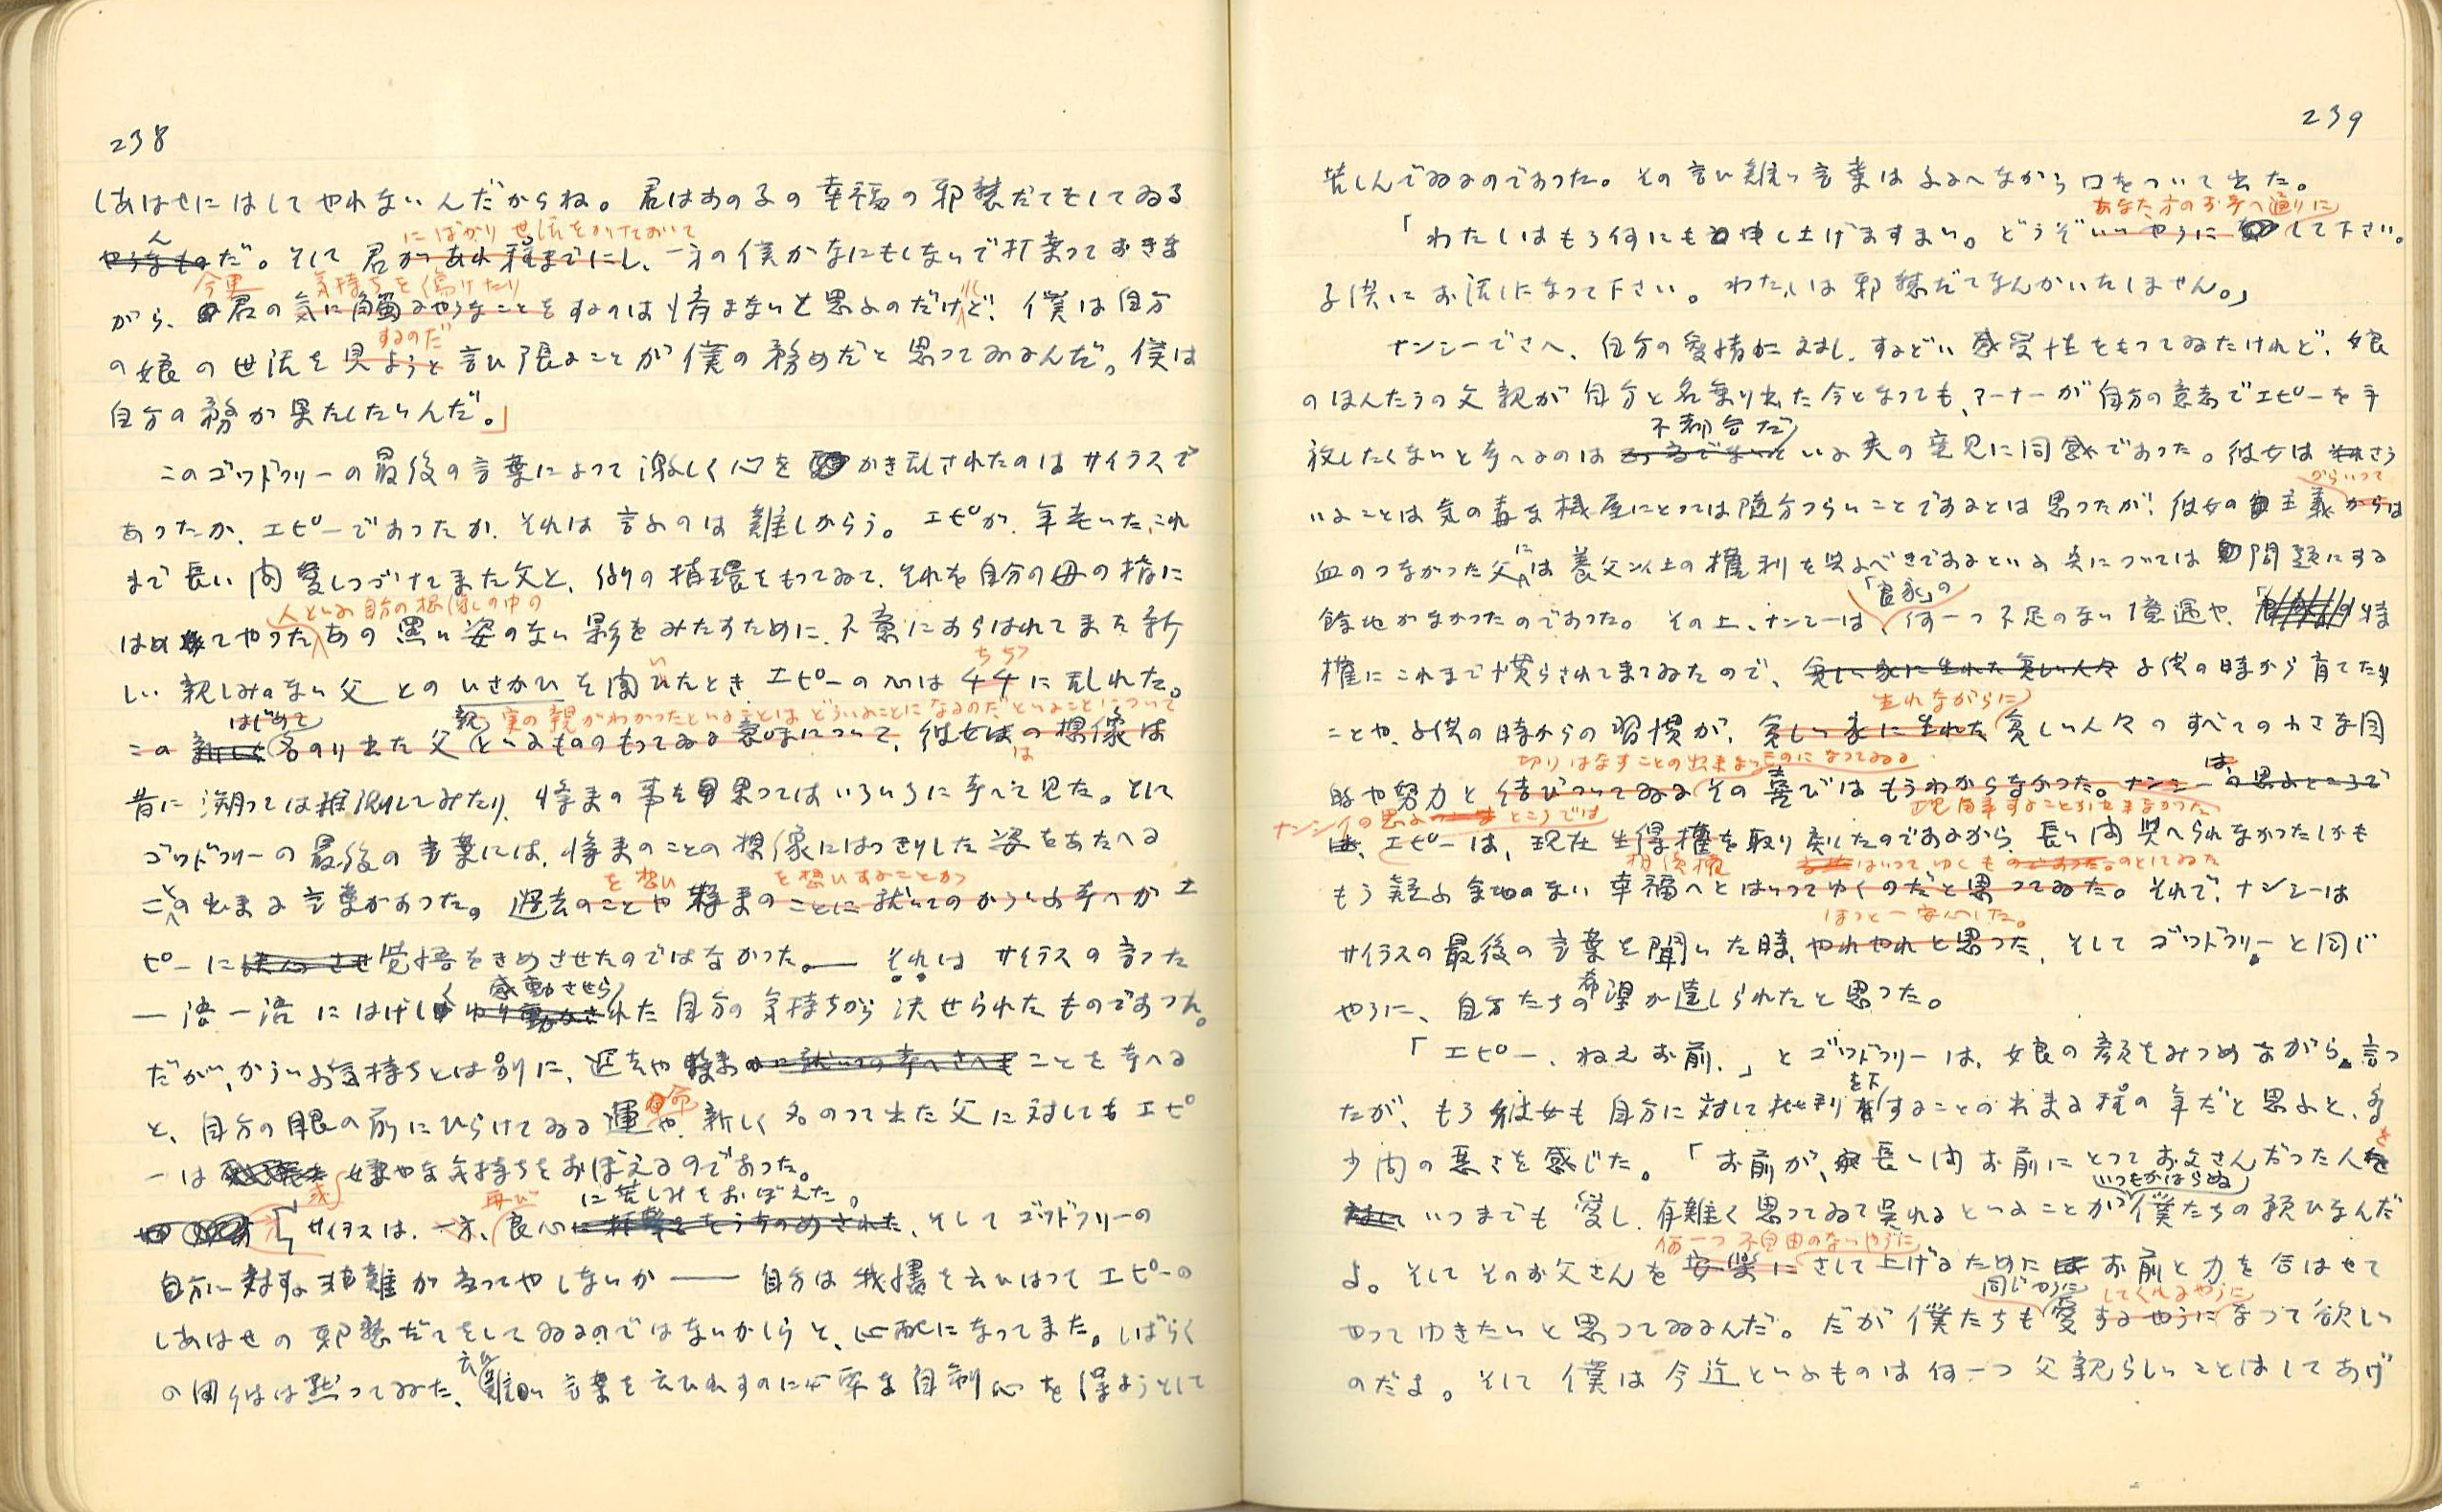 238
しあはせにはしてやれないんだからね。君はあの子の幸福の邪魔だてをしてゐる
ん
やうなものだ。そして君があれ程までにし、一方の僕がなにもしないで打棄っておきな
にばかり世話をかけておいて
がら、今更君の気に触るやうなことをするのは済まないと思ふのだけれど、僕は自分
気持ちを傷けたり
の娘の世話を見ようと言ひ張ることが僕の務めだと思ってゐるんだ。僕は
するのだ
自分の務が果たしたいんだ。」
このゴッドフリーの最後の言葉によって激しく心をかき乱されたのはサイラスで
あったか、エピーであったか、それは言ふのは難しからう。エピが、年老いた、これ
まで長い間愛しつづけてきた父と、
それを自分の母の指に
人といふ自分の想像の中の
はめてやったあの黒い姿のない影をみたすために、不意にあらはれてきた新
しい親しみのない父とのいさかひを聞いたときエピーの心は千千に乱れた。
ちぢ
はじめて
親
実の親がわかったといふことはどういふことになるのだといふことについて
この新しく名のり出た父といふもののもってゐる意味について、彼女の想像は
は
昔に溯っては推測してみたり、将来の事を思ってはいろいろに考へて見た。そして
ゴッドフリーの最後の言葉には、将来のことの想像にはっきりした姿をあたへる
ことの出来る言葉があった。過去のことや将来のことに就いてのかういふ考へがエ
を想ひ
を想ひすることが
ピーに決心させ覚悟をきめさせたのではなかった。― それはサイラスの言った
一語一語にはげしくゆり動かされた自分の気持ちから決せられたものであった。
感動させら
だが、かういふ気持ちとは別に、過去や将来に就いての考へさへもことを考へる
と、自分の眼の前にひらけてゐる運命や、新しく名のって出た父に対してもエピ
ーは嫌やな気持ちをおぼえるのであった。
再び
に苦しみをおぼえた。
サイラスは、一方、良心に打撃をもうちのめされた、そしてゴッドフリーの
自分に対する非難が当ってやしないか ―― 自分は我儘を云ひはってエピーの
しあはせの邪魔だてをしてゐるのではないかしらと、心配になってきた。しばらく
の間彼は黙ってゐた、云ひ難い言葉を云ひ出すのに必要な自制心を得ようとして
239
苦しんでゐるのであった。その言ひ難い言葉はふるへながら口をついて出た。
あなた方のお考へ通りに
「わたしはもう何にも申し上げますまい。どうぞいいやうにして下さい。
子供にお話しになって下さい。わたしは邪魔だてなんかいたしません。」
ナンシーでさへ、自分の愛情に対し、するどい感受性をもってゐたけれど、娘
のほんたうの父親が自分と名乗り出た今となっても、マーナーが自分の意志でエピーを手
不都合だ
放したくないと考へるのは
いふ夫の意見に同感であった。彼女はさう
からいって
いふことは気の毒な機屋にとっては随分つらいことであるとは思ったが、彼女の主義からは
血のつながった父には養父以上の権利を与ふべきであるといふ点については問題にする
「良家」の
餘地がなかったのであった。その上、ナンシーは、何一つ不足のない境遇や、特
権にこれまで慣らされてきてゐたので、貧しい家に生れた貧しい人々 子供の時から育てた
生れながらに
ことや、子供の時からの習慣が、貧しい家に生れた貧しい人々のすべての小さな目
切りはなすことの出来ないものになってゐる
的や努力と結びついてゐるその喜びはもうわからなかった。ナンシーの思ふところで
は
理解することが出来なかった
ナンシイの思ふところでは
は、エピーは、現在生得権を取り戻したのであるから、長い間与へられなかったしかも
相続権
はいってゆくものであった。のとしてゐた
もう疑ふ余地のない幸福へとはいってゆくのだと思ってゐた。それで、ナンシーは
ほっと一安心した。
サイラスの最後の言葉を聞いた時、やれやれと思った、そしてゴッドフリーと同じ
やうに、自分たちの希望が達しられたと思った。
「エピー、ねえお前、」とゴッドフリーは、娘の顔をみつめながら、言っ
を下
たが、もう彼女も自分に対して批判することの出来る程の年だと思ふと、多
少間の悪さを感じた。「お前が、長い間お前にとってお父さんだった人を
いつもかはらぬ
いつまでも愛し、有難く思ってゐて呉れるといふことが僕たちの願ひなんだ
何一つ不自由のないやうに
よ。そしてそのお父さんを安楽にさして上げるためにお前と力を合はせて
同じやうに
してくれるやうに
やってゆきたいと思ってゐるんだ。だが僕たちも愛するやうになって欲しい
のだよ。そして僕は今迄といふものは何一つ父親らしいことはしてあげ